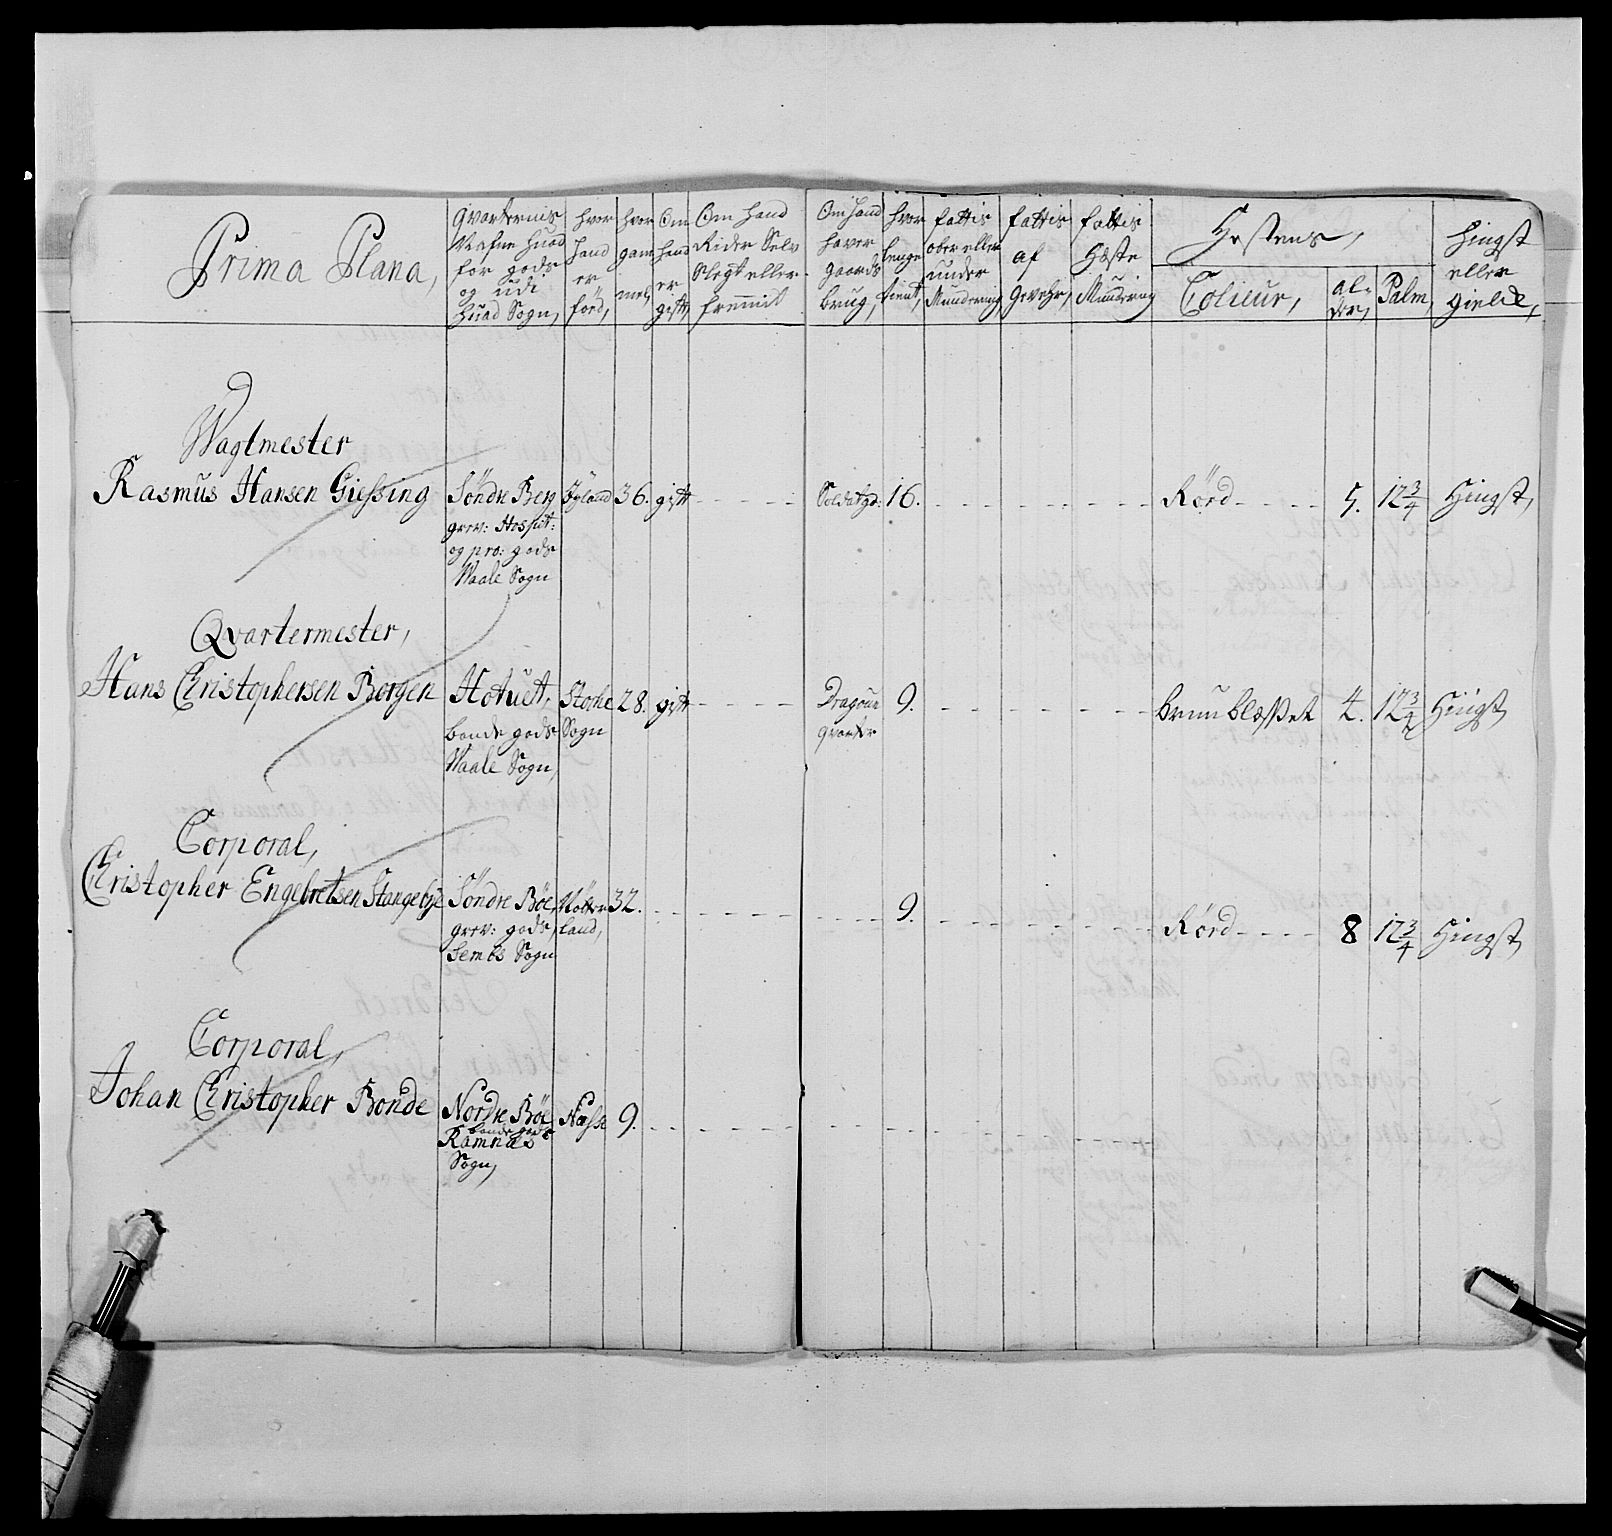 Prima Plana,
Qvarterernis Nafne huad for gods og udi huad Sogn,
hvor hand er föed,
hvor gam mel,
Om hand er gift,
Om hand Rider Selv Slegt eller fremmit
Om hand haver gaards brug,
hvor lenge tient,
fattis ober eller under Mundering
fattis af Gevehr,
fattis Heste Mundering
Hestens,
Colieur,
al-der,
Palm,
hingst eller gielde,
Wagtmester
Rasmus Hansen Giessing
Söndre Berg
grev: Hospit:
og pro: gods
Waale Sogn
Jyland 36. gift
Soldatgd: 16.
Rörd 5. 12 3/4 Hingst,
Qvartermester,
Hans Christophersen Borgen
Hotuet,
bonde gods
Waale Sogn,
Stoche Sogn
28. gift
Dragoun qvarter
9.
brun blesset 4. 12 3/4 Hingst,
Corporal,
Christopher Engebretsen Stangebye
Söndre Böe,
grev: gods,
Sembs Sogn
Nötter land,
32.
9.
Rörd 8 12 3/4 Hingst,
Corporal,
Johan Christopher Bonde
Nordre Böe
bonde gods
Ramnæs
Sogn,
Næsse 9.